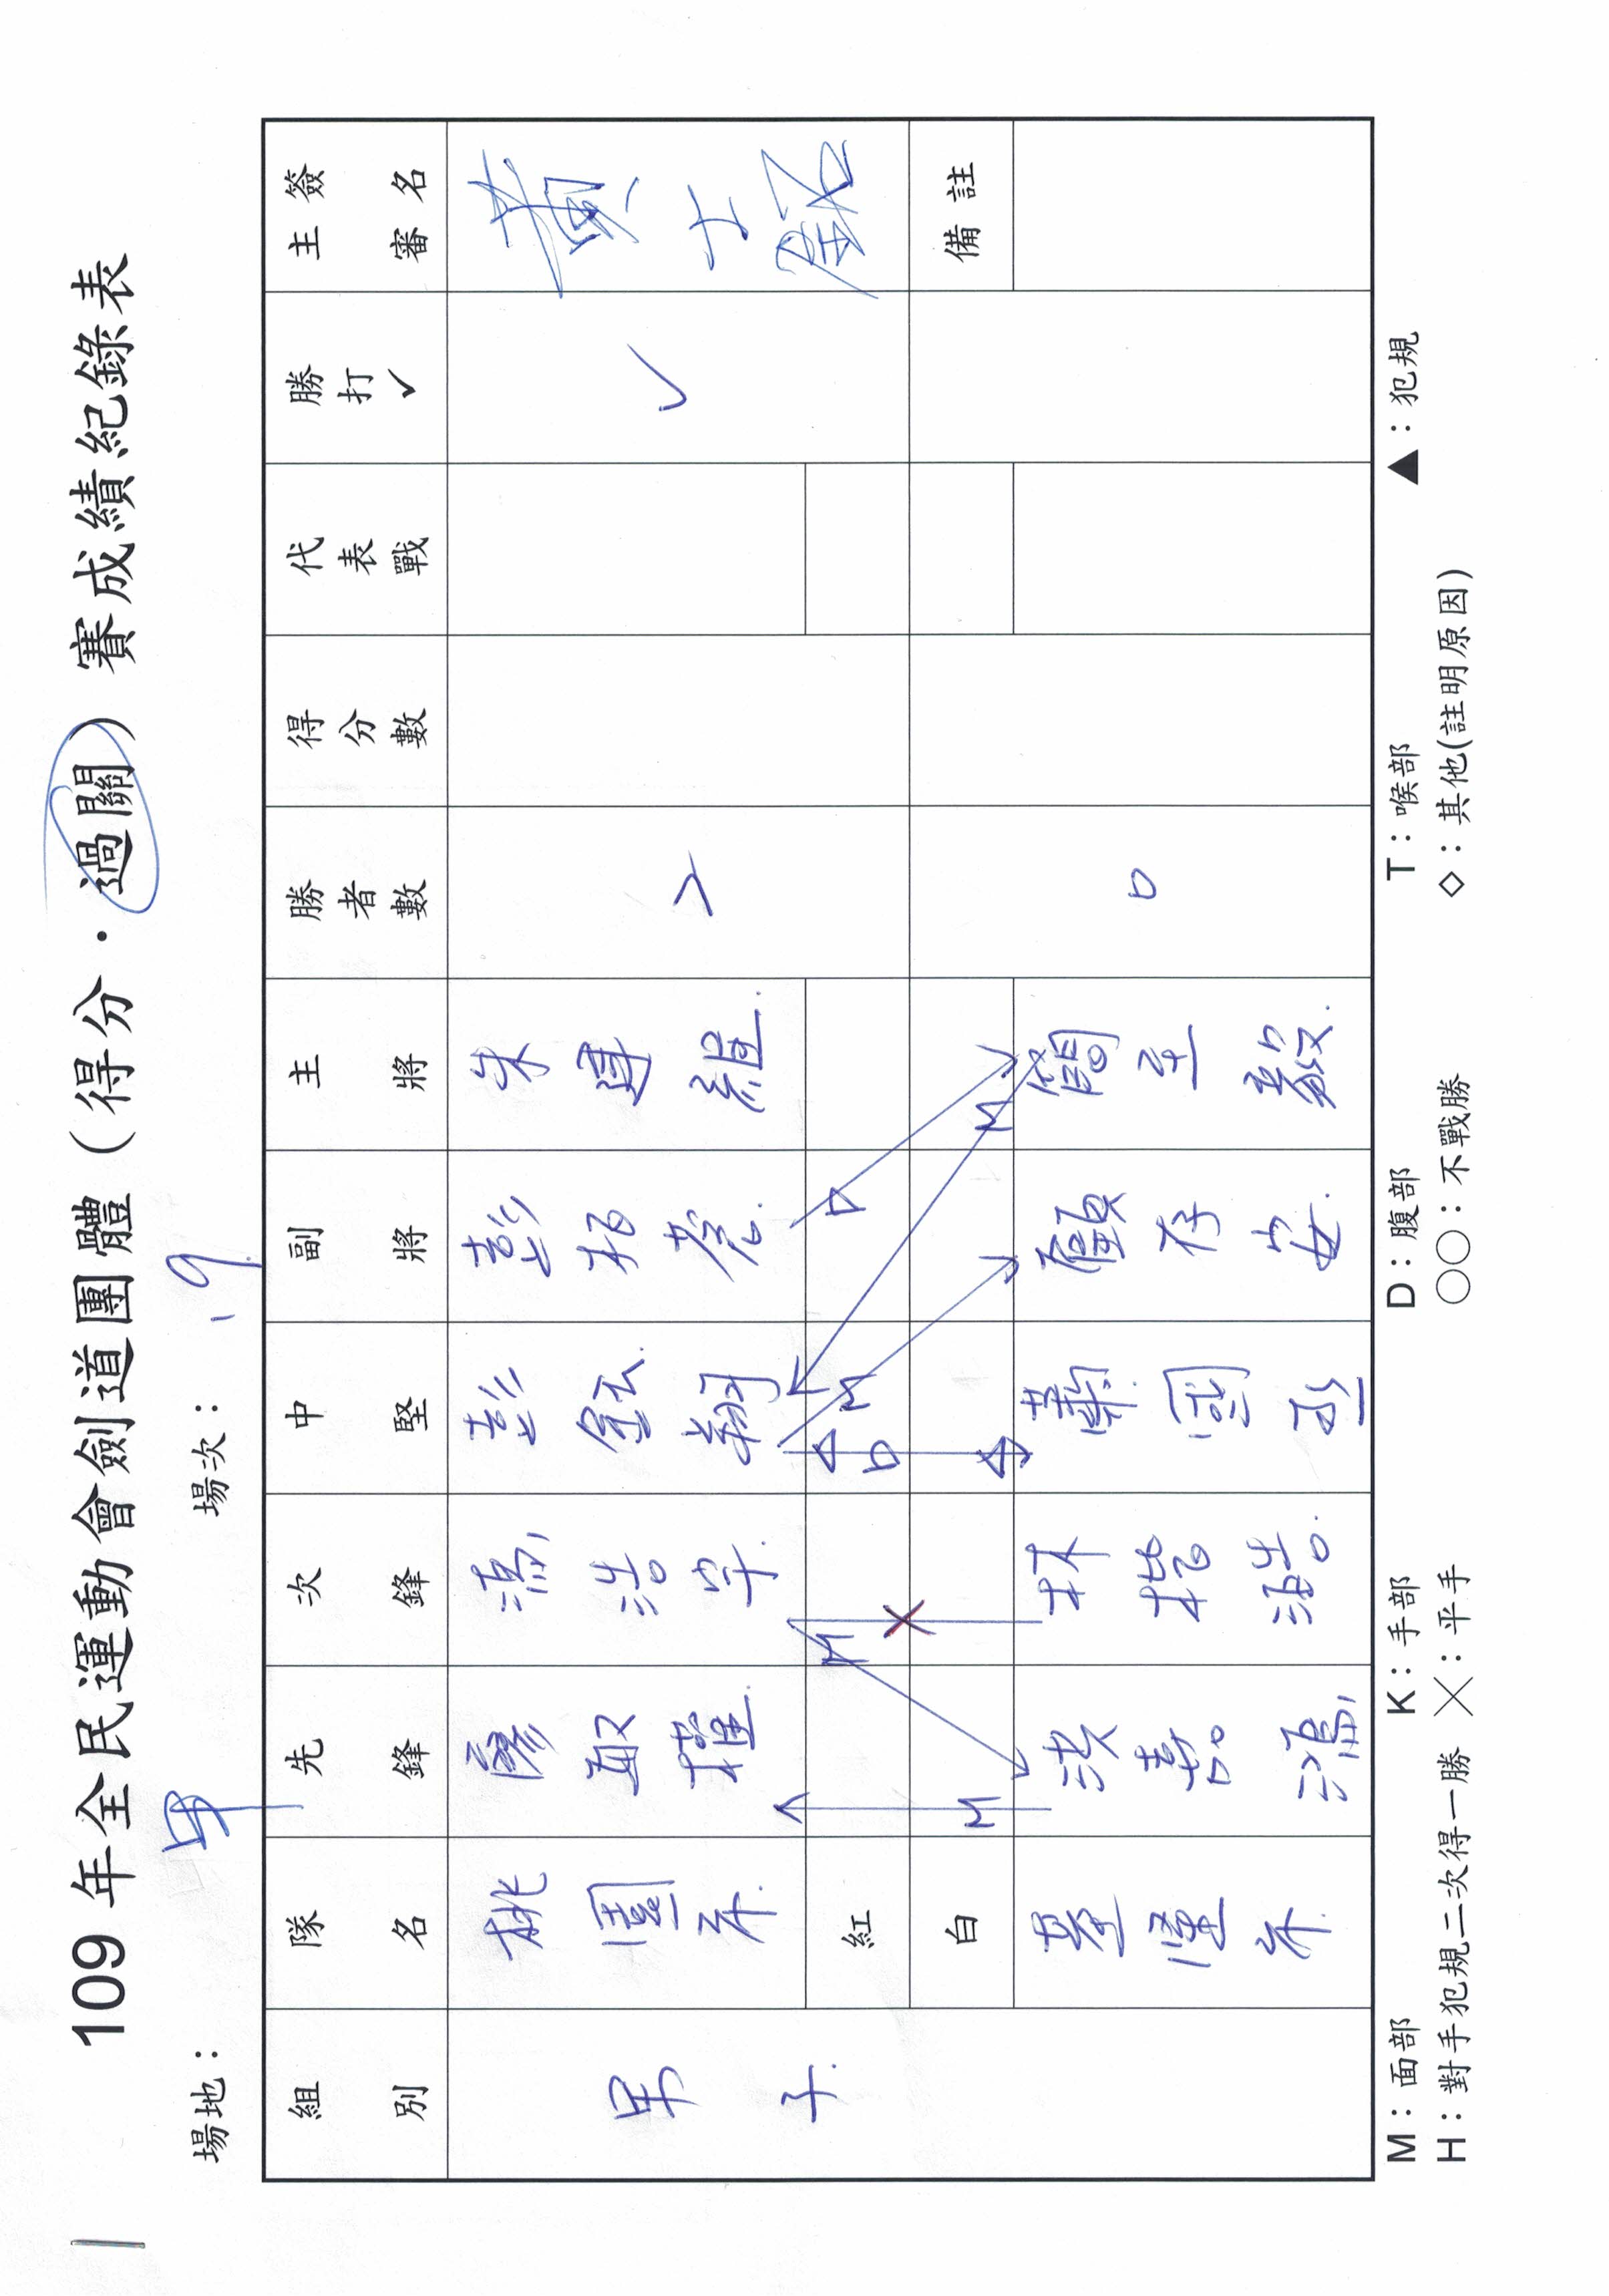 109 年全民運動會劍道團體（得分．過關）賽成績紀錄表
場地： 場次： 19
組別 隊名 先鋒 次鋒 中堅 副將 主將 勝者數 得分數 代表戰 勝打✓ 主審簽名
男子 桃園市 廖 馮浩宇 彭 翔 彭柏 朱 2 ✓ 黃士
D
M M D
紅
× 備註
白
M M
基隆市 洪嘉鴻 林楷浩 蕭國 顧存安 簡至毅 0
M：面部 K：手部 D：腹部 T：喉部 ▲：犯規
H：對手犯規二次得一勝 ╳：平手 ○○：不戰勝 ◇：其他(註明原因)